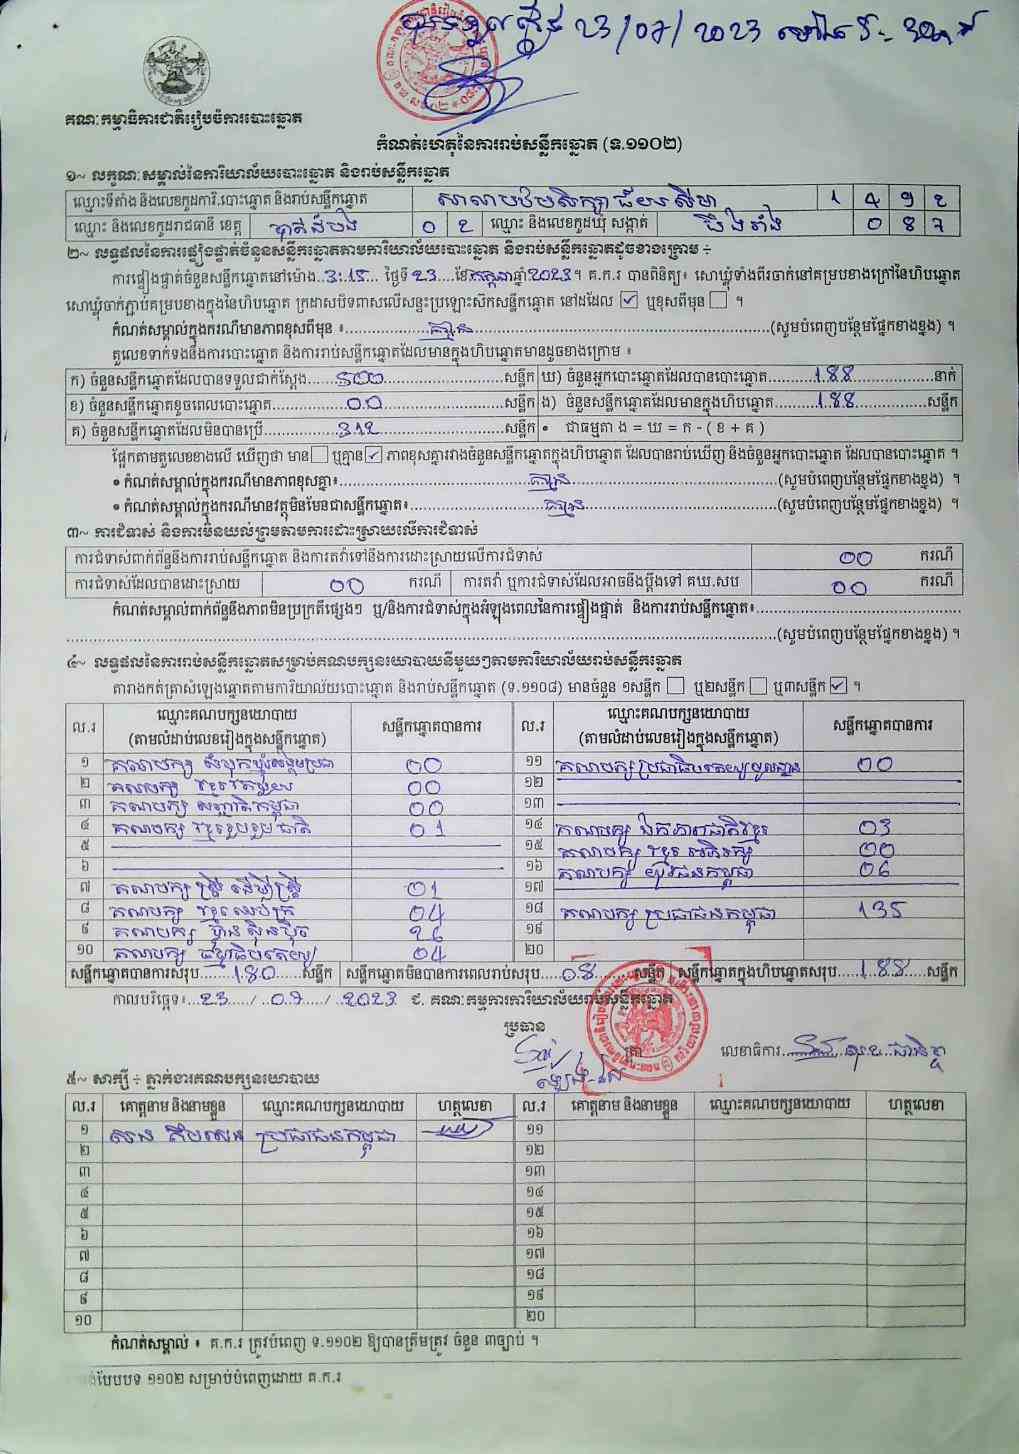 23/07/2023
គណៈកម្មាធិការជាតិរៀបចំការបោះឆ្នោត
កំណត់ហេតុនៃការរាប់សន្លឹកឆ្នោត (ទ.១១០២)
១~ លក្ខណៈសម្គាល់នៃការិយាល័យបោះឆ្នោត និងរាប់សន្លឹកឆ្នោត
ឈ្មោះទីតាំង និងលេខកូដការិ.បោះឆ្នោត និងរាប់សន្លឹកឆ្នោត 1 4 9 2
ឈ្មោះ និងលេខកូដរាជធានី ខេត្ត បាត់ដំបង 0 2 ឈ្មោះ និងលេខកូដឃុំ សង្កាត់ 0 8 7
២~ លទ្ធផលនៃការផ្ទៀងផ្ទាត់ចំនួនសន្លឹកឆ្នោតតាមការិយាល័យបោះឆ្នោត និងរាប់សន្លឹកឆ្នោតដូចខាងក្រោម ÷
ការផ្ទៀងផ្ទាត់ចំនួនសន្លឹកឆ្នោតនៅម៉ោង..3:15... ថ្ងៃទី 23....ខែកក្កដាឆ្នាំ2023។ គ.ក.រ បានពិនិត្យ៖ សោឃ្លុំទាំងពីរចាក់នៅគម្របខាងក្រៅនៃហិបឆ្នោត
សោឃ្លុំចាក់ភ្ជាប់គម្របខាងក្នុងនៃហិបឆ្នោត ក្រដាសបិទពាសលើសន្ទះប្រឡោះស៊កសន្លឹកឆ្នោត នៅដដែល ☑ ឬខុសពីមុន ☐ ។
កំណត់សម្គាល់ក្នុងករណីមានភាពខុសពីមុន ៖......គ្មាន......(សូមបំពេញបន្ថែមផ្នែកខាងខ្នង) ។
តួលេខទាក់ទងនឹងការបោះឆ្នោត និងការរាប់សន្លឹកឆ្នោតដែលមានក្នុងហិបឆ្នោតមានដូចខាងក្រោម ៖
ក) ចំនួនសន្លឹកឆ្នោតដែលបានទទួលជាក់ស្តែង......500......សន្លឹក ឃ) ចំនួនអ្នកបោះឆ្នោតដែលបានបោះឆ្នោត......188......នាក់
ខ) ចំនួនសន្លឹកឆ្នោតខូចពេលបោះឆ្នោត......00......សន្លឹក ង) ចំនួនសន្លឹកឆ្នោតដែលមានក្នុងហិបឆ្នោត......188......សន្លឹក
គ) ចំនួនសន្លឹកឆ្នោតដែលមិនបានប្រើ......312......សន្លឹក • ជាធម្មតា ង = ឃ = ក - ( ខ + គ )
ផ្អែកតាមតួលេខខាងលើ ឃើញថា មាន ☐ ឬគ្មាន ☑ ភាពខុសគ្នារវាងចំនួនសន្លឹកឆ្នោតក្នុងហិបឆ្នោត ដែលបានរាប់ឃើញ និងចំនួនអ្នកបោះឆ្នោត ដែលបានបោះឆ្នោត ។
• កំណត់សម្គាល់ក្នុងករណីមានភាពខុសគ្នា៖......គ្មាន......(សូមបំពេញបន្ថែមផ្នែកខាងខ្នង) ។
• កំណត់សម្គាល់ក្នុងករណីមានវត្ថុមិនមែនជាសន្លឹកឆ្នោត៖......គ្មាន......(សូមបំពេញបន្ថែមផ្នែកខាងខ្នង) ។
៣~ ការជំទាស់ និងការមិនយល់ព្រមតាមការដោះស្រាយលើការជំទាស់
ការជំទាស់ពាក់ព័ន្ធនឹងការរាប់សន្លឹកឆ្នោត និងការតវ៉ាទៅនឹងការដោះស្រាយលើការជំទាស់ 00 ករណី
ការជំទាស់ដែលបានដោះស្រាយ 00 ករណី ការតវ៉ា ឬការជំទាស់ដែលអាចនឹងប្តឹងទៅ គឃ.សប 00 ករណី
កំណត់សម្គាល់ពាក់ព័ន្ធនឹងភាពមិនប្រក្រតីផ្សេងៗ ឬ/និងការជំទាស់ក្នុងអំឡុងពេលនៃការផ្ទៀងផ្ទាត់ និងការរាប់សន្លឹកឆ្នោត៖......
......(សូមបំពេញបន្ថែមផ្នែកខាងខ្នង) ។
៤~ លទ្ធផលនៃការរាប់សន្លឹកឆ្នោតសម្រាប់គណបក្សនយោបាយនីមួយៗតាមការិយាល័យរាប់សន្លឹកឆ្នោត
តារាងកត់ត្រាសំឡេងឆ្នោតតាមការិយាល័យបោះឆ្នោត និងរាប់សន្លឹកឆ្នោត (ទ.១១០៨) មានចំនួន ១សន្លឹក ☐ ឬ២សន្លឹក ☐ ឬ៣សន្លឹក ☑ ។
ល.រ ឈ្មោះគណបក្សនយោបាយ (តាមលំដាប់លេខរៀងក្នុងសន្លឹកឆ្នោត) សន្លឹកឆ្នោតបានការ ល.រ ឈ្មោះគណបក្សនយោបាយ (តាមលំដាប់លេខរៀងក្នុងសន្លឹកឆ្នោត) សន្លឹកឆ្នោតបានការ
១ គណបក្ស 00 ១១ គណបក្ស ប្រជាធិបតេយ្យមូលដ្ឋាន 00
២ គណបក្ស ខ្មែរ 00 ១២
៣ គណបក្ស សញ្ជាតិកម្ពុជា 00 ១៣
៤ គណបក្ស ខ្មែររួបរួមជាតិ 01 ១៤ គណបក្ស ឯកភាពជាតិខ្មែរ 03
៥ ១៥ គណបក្ស ខ្មែរ អភិរក្ស 00
៦ ១៦ គណបក្ស យុវជនកម្ពុជា 06
៧ គណបក្ស ស្ត្រី ដើម្បីស្ត្រី 01 ១៧
៨ គណបក្ស ខ្មែរឈប់ក្រ 04 ១៨ គណបក្ស ប្រជាជនកម្ពុជា 135
៩ គណបក្ស ហ្វ៊ុនស៊ិនប៉ិច 26 ១៩
១០ គណបក្ស ធម្មាធិបតេយ្យ 04 ២០
សន្លឹកឆ្នោតបានការសរុប......180......សន្លឹក សន្លឹកឆ្នោតមិនបានការពេលរាប់សរុប......08......សន្លឹក សន្លឹកឆ្នោតក្នុងហិបឆ្នោតសរុប...188...សន្លឹក
កាលបរិច្ឆេទ៖...23..../..07..../..2023 ជ. គណៈកម្មការការិយាល័យរាប់សន្លឹកឆ្នោត
ប្រធាន
ត្រា លេខាធិការ
៥~ សាក្សី ÷ ភ្នាក់ងារគណបក្សនយោបាយ
ល.រ គោត្តនាម និងនាមខ្លួន ឈ្មោះគណបក្សនយោបាយ ហត្ថលេខា ល.រ គោត្តនាម និងនាមខ្លួន ឈ្មោះគណបក្សនយោបាយ ហត្ថលេខា
១ ប្រជាជនកម្ពុជា ១១
២ ១២
៣ ១៣
៤ ១៤
៥ ១៥
៦ ១៦
៧ ១៧
៨ ១៨
៩ ១៩
១០ ២០
កំណត់សម្គាល់ ៖ គ.ក.រ ត្រូវបំពេញ ទ.១១០២ ឱ្យបានត្រឹមត្រូវ ចំនួន ៣ច្បាប់ ។
បែបបទ ១១០២ សម្រាប់បំពេញដោយ គ.ក.រ